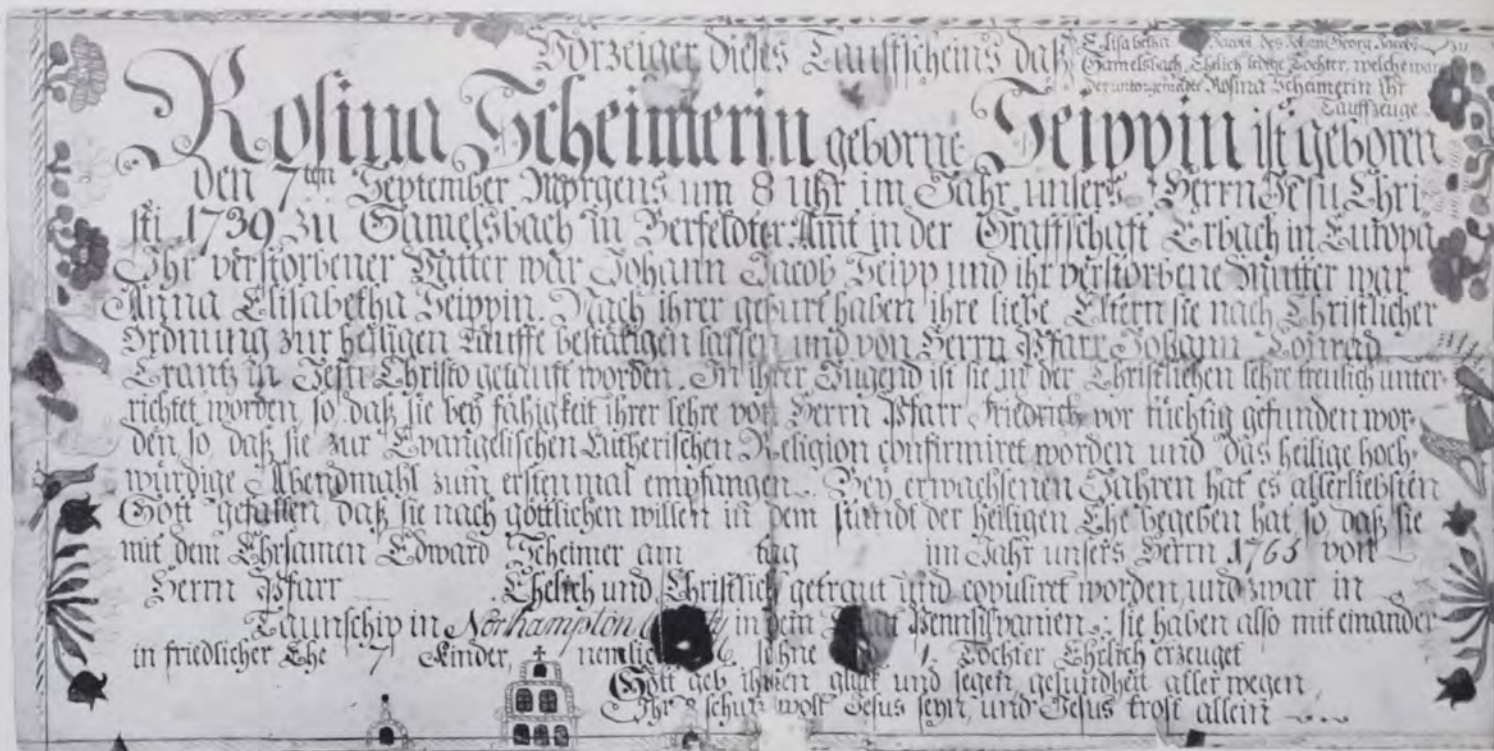 Vorzeiger dieses Tauffscheins daß
Elisabetha Jacobi des Johan Georg Jacobs zu
Gamelsbach, Ehelich ledige Tochter, welche war
der untorgemelde Rosina Scheimerin Ihr
Tauffzeuge
Rosina Scheimerin geborne Seippin ist geboren
den 7ten September Morgens um 8 uhr im Jahr unsers Herrn Jesu Chri
sti 1739 zu Gamelsbach in Berfeldter Amt in der Graffschaft Erbach in Europa
Ihr verstorbener Vatter war Johann Jacob Seipp und ihr verstorbene Mutter war
Anna Elisabetha Seippin. Nach ihrer geburt haben ihre liebe Eltern sie nach Christlicher
Ordnung zur heiligen Tauffe bestätigen lassen und von Herrn Pfarr Johann Conrad
Crantz in Jesu Christo getauft worden. In ihrer Jugend ist sie in der Christlichen lehre treulich unter-
richtet worden so daß sie bey fähigkeit ihrer lehre von Herrn Pfarr Friedrich vor tüchtig gefunden wor-
den, so daß sie zur Evangelischen Lutherischen Religion confirmiret worden und das heilige hoch-
würdige Abendmahl zum erstenmal empfangen. Bey erwachsenen Jahren hat es allerliebsten
Gott gefallen, daß sie nach göttlichen willen in dem standt der heiligen Ehe begeben hat so daß sie
mit dem Ehrsamen Edward Scheimer am tag im Jahr unsers Herrn 1765 von
Herrn Pfarr Ehelich und Christlich getraut und copuliret worden, und zwar in
Taunschip in Norhampton in dem Pennsilvanien. sie haben also mit einander
in friedlicher Ehe 7 Kinder, nemlich 6 söhne 1 Tochter Ehrlich erzeuget
Gott geb ihnen glück und segen, gesundheit aller wegen,
Ihr schutz wolt Jesus seyn, und Jesus trost allein